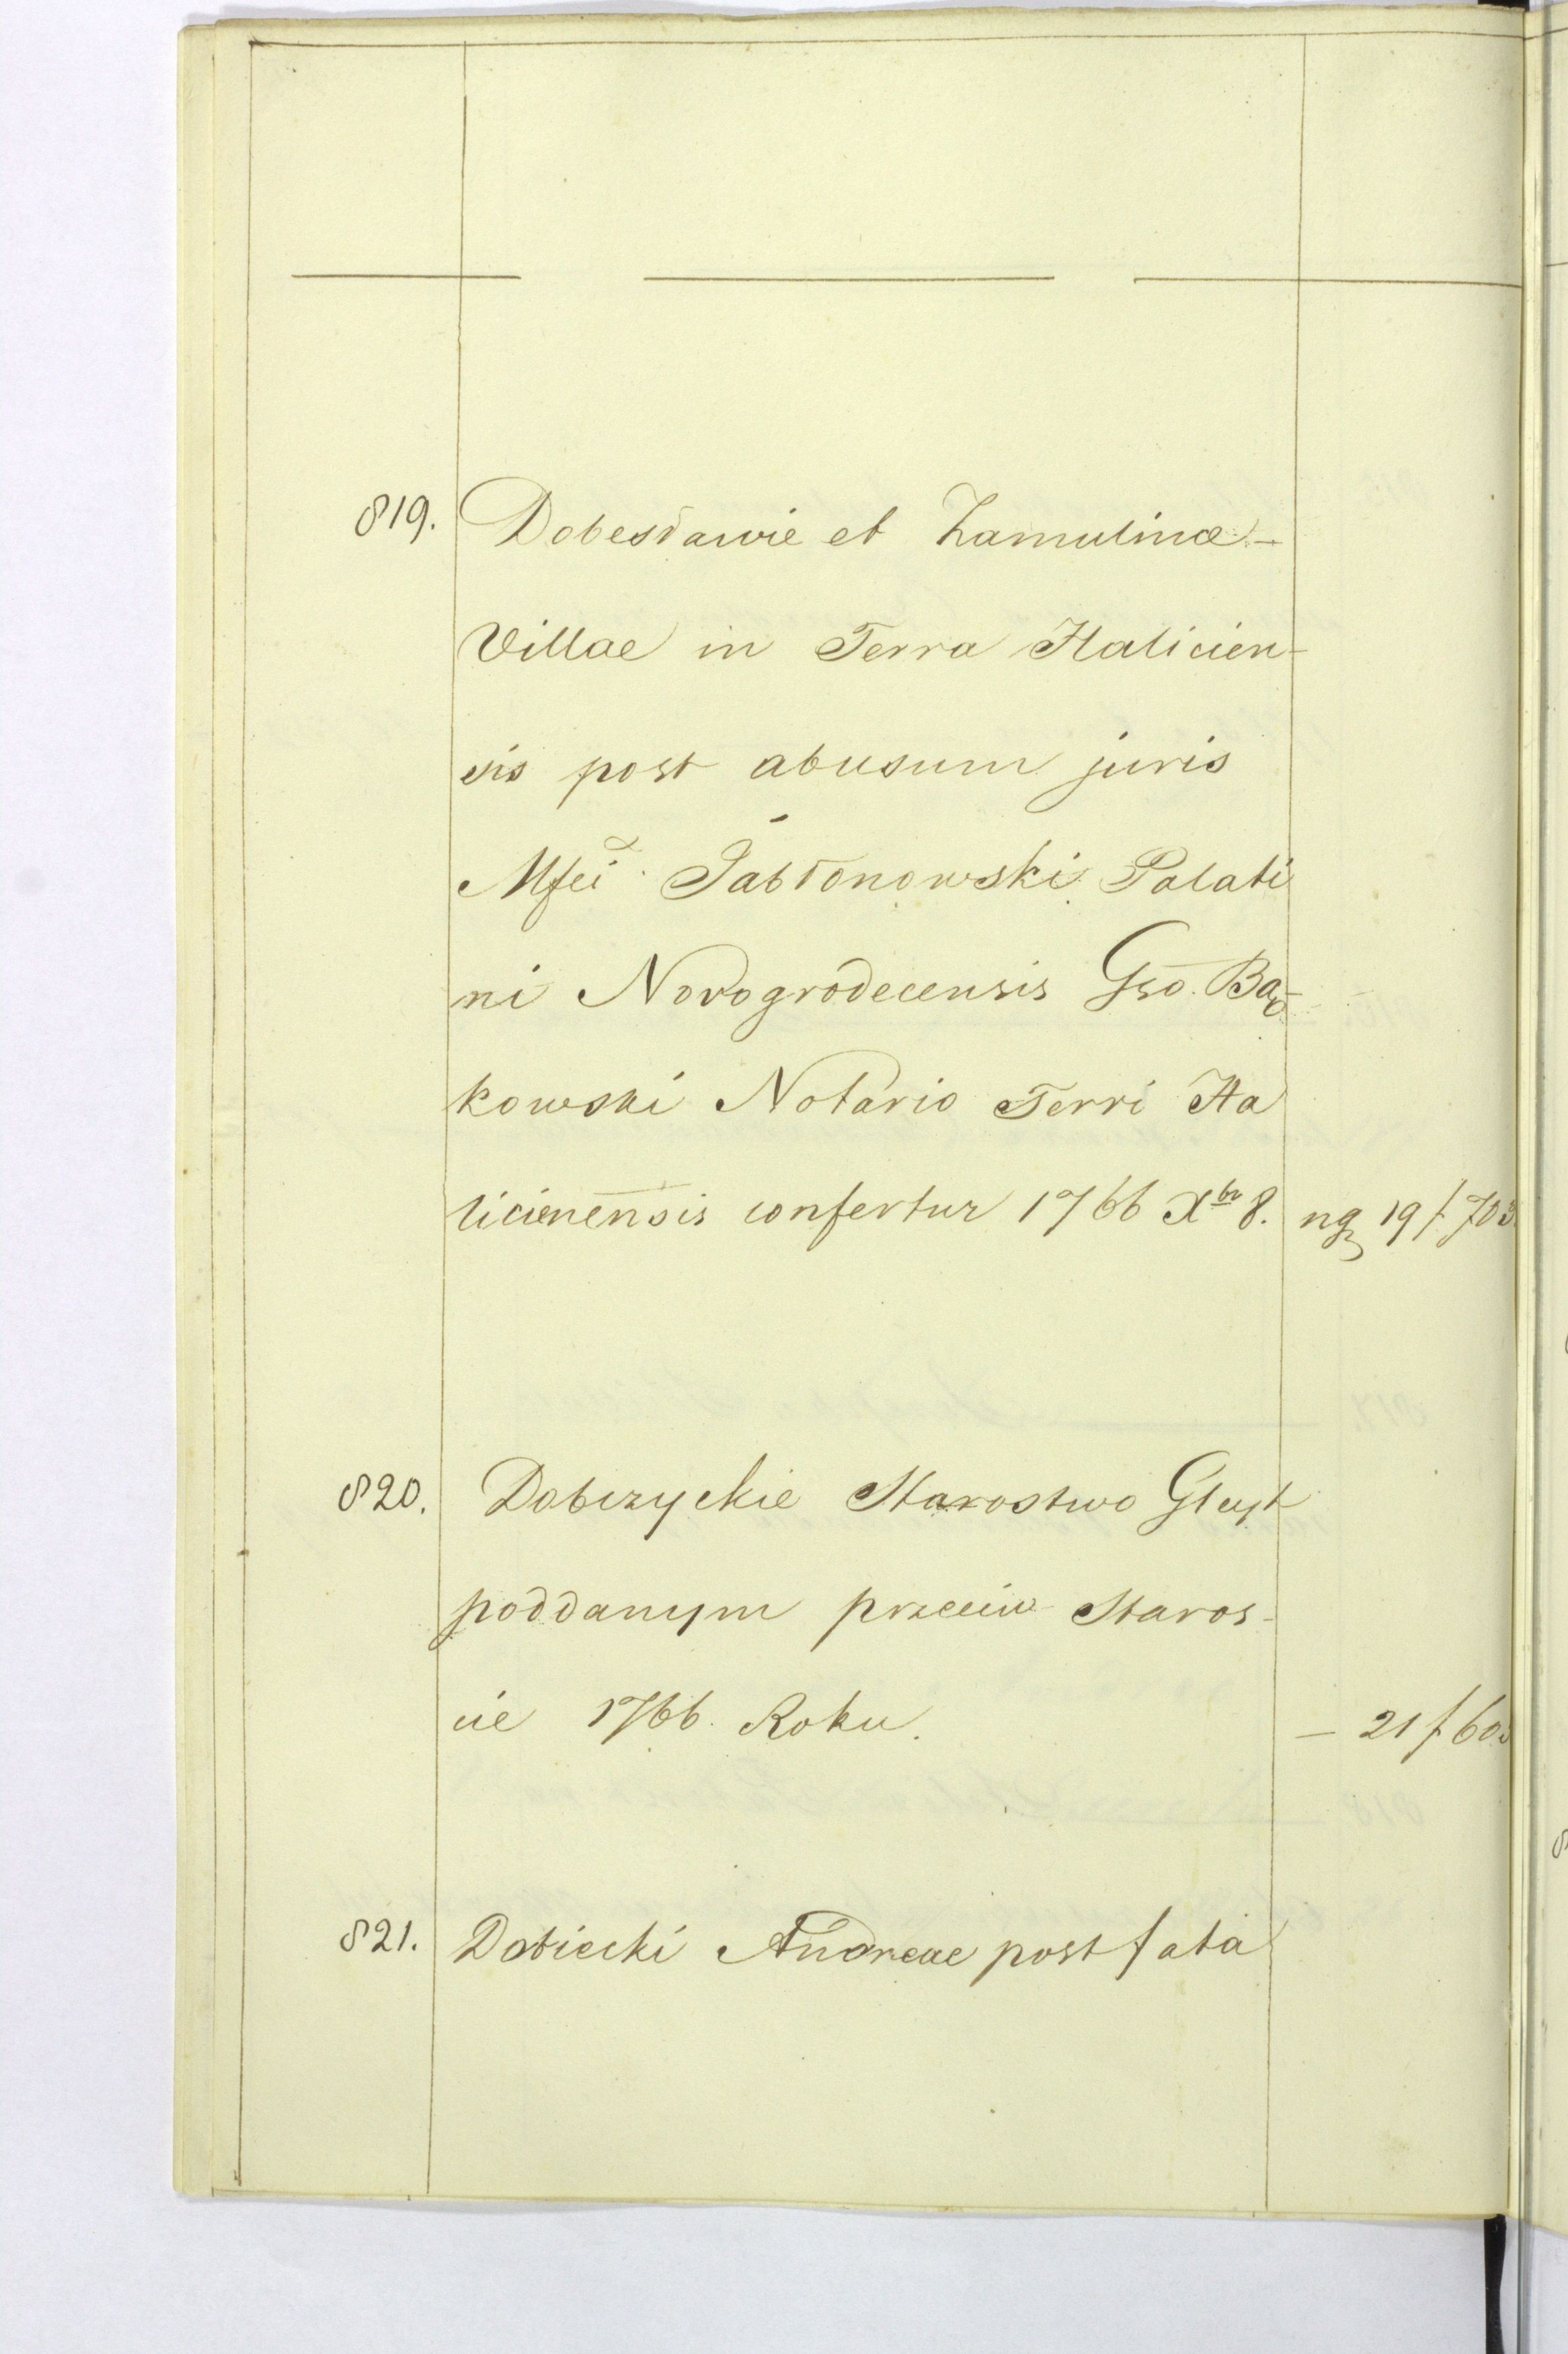 819. Dobesławie et Zamulinæ-
Villae in Terra Halicien-
sis post abusum juris
Mfci Jabłonowski Palati
ni Novogrodecensis Gso. Bą-
kowski Notario Terri Ha
licienensis confertur 1766 Xbr 8. ng 19 f. 703
820. Dobczyckie Starostwo Gleyt
poddanym przeciw Staros-
cie 1766. Roku. — 21 f. 603
821. Dobiecki Andreae post fata